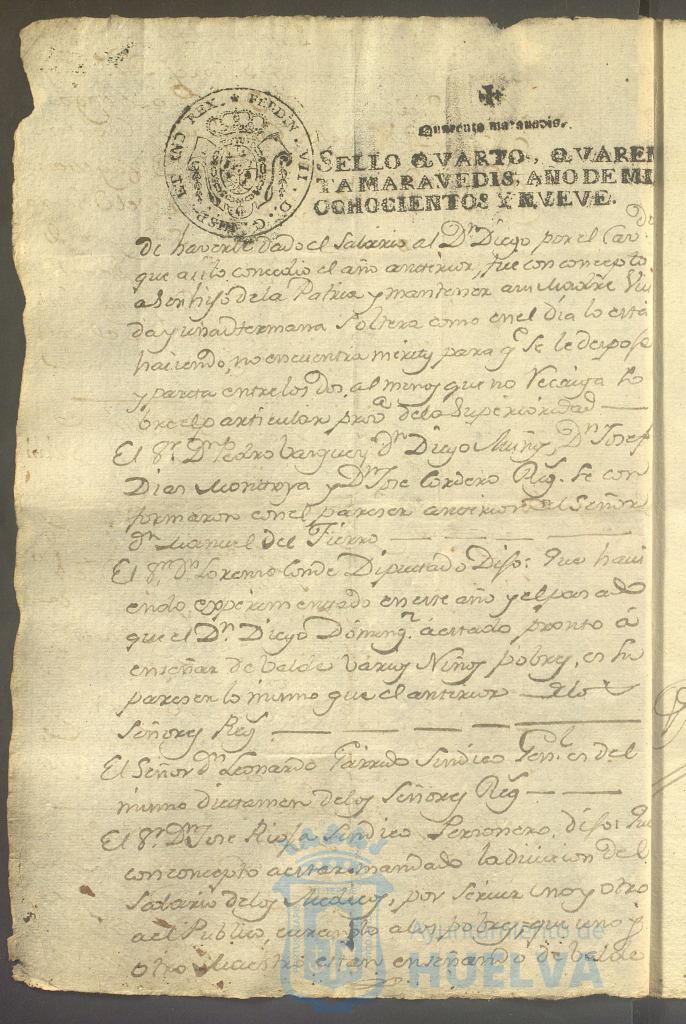 FERDIN. VII. D. G. HISP. ET IND. REX.
Quarenta maravedis.
SELLO QVARTO, QVAREN
TA MARAVEDIS, AÑO DE MIL
OCHOCIENTOS Y NVEVE.
de haverle dado el Salario al Dn. Diego por el Cavdo.
que asi lo concedio el año anterior, fue con concepto
a Ser hijo de la Patria y mantener a su Madre Viu
da y una Hermana Soltera como en el dia lo está
haciendo, no encuentra merito para q. Se le despoje
y parta entre los dos, al menos que no Recaiga So
bre el particular prova. de la Superioridad
El Sr. Dn. Pedro Vazquez, Dn. Diego Muñoz, Dn. Josef
Dias Montoya y Dn. Jose Cordero Reg. Se con
formaron con el pareser anterior del Señor
Dn. Manuel del Fierro
El Sr. Dn. Lorenzo Conde Diputado Dijo: Que havi
endo experimentado en este año y el pasado
que el Dn. Diego Doming.z á estado pronto á
enseñar de balde varios Niños pobres, es su
pareser lo mismo que el anterior de los
Señores Reg.
El Señor Dn. Leonardo Garrido Sindico Genl. es del
mismo dictamen de los Señores Reg
El Sr. Dn. Jose Rioja Sindico Personero, dijo: Que
con concepto a estar mandado la divicion del
Salario de los Medicos, por Servir uno y otro
a el Publico, curando a los pobres, que uno y
otro Maestro estan enseñando de balde
Ayuntamiento de
HUELVA